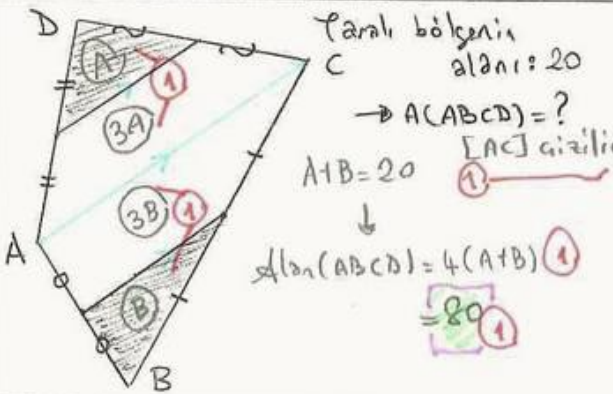 D
A
1
3A
C
3B
1
A
B
B
Taralı bölgenin
alanı: 20
→ A(ABCD) = ?
[AC] çizilir
A+B = 20
1
↓
Alan(ABCD) = 4(A+B) 1
= 80 1